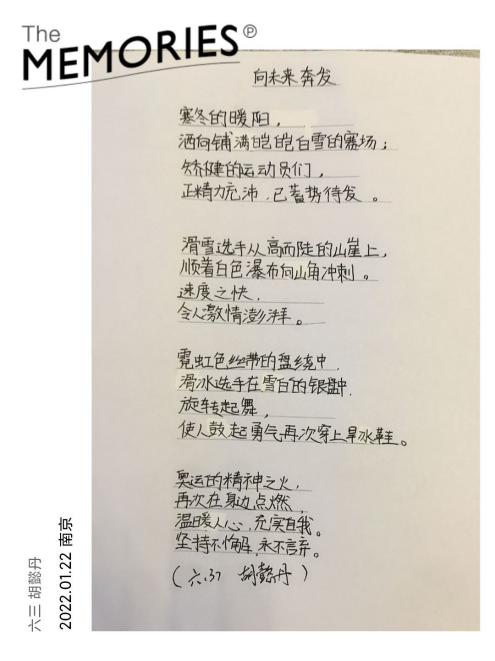 The
MEMORIES℗
向未来奔发
寒冬的暖阳，
洒向铺满皑皑白雪的赛场；
矫健的运动员们，
正精力充沛，已蓄势待发。
滑雪选手从高而陡的山崖上，
顺着白色瀑布向山角冲刺。
速度之快，
令人激情澎湃。
霓虹色丝带的盘绕中，
滑冰选手在雪白的银盘中，
旋转起舞，
使人鼓起勇气再次穿上旱冰鞋。
奥运的精神之火，
再次在身边点燃，
温暖人心，充实自我。
坚持不懈，永不言弃。
（六.3） 胡懿丹）
六三 胡懿丹
2022.01.22 南京